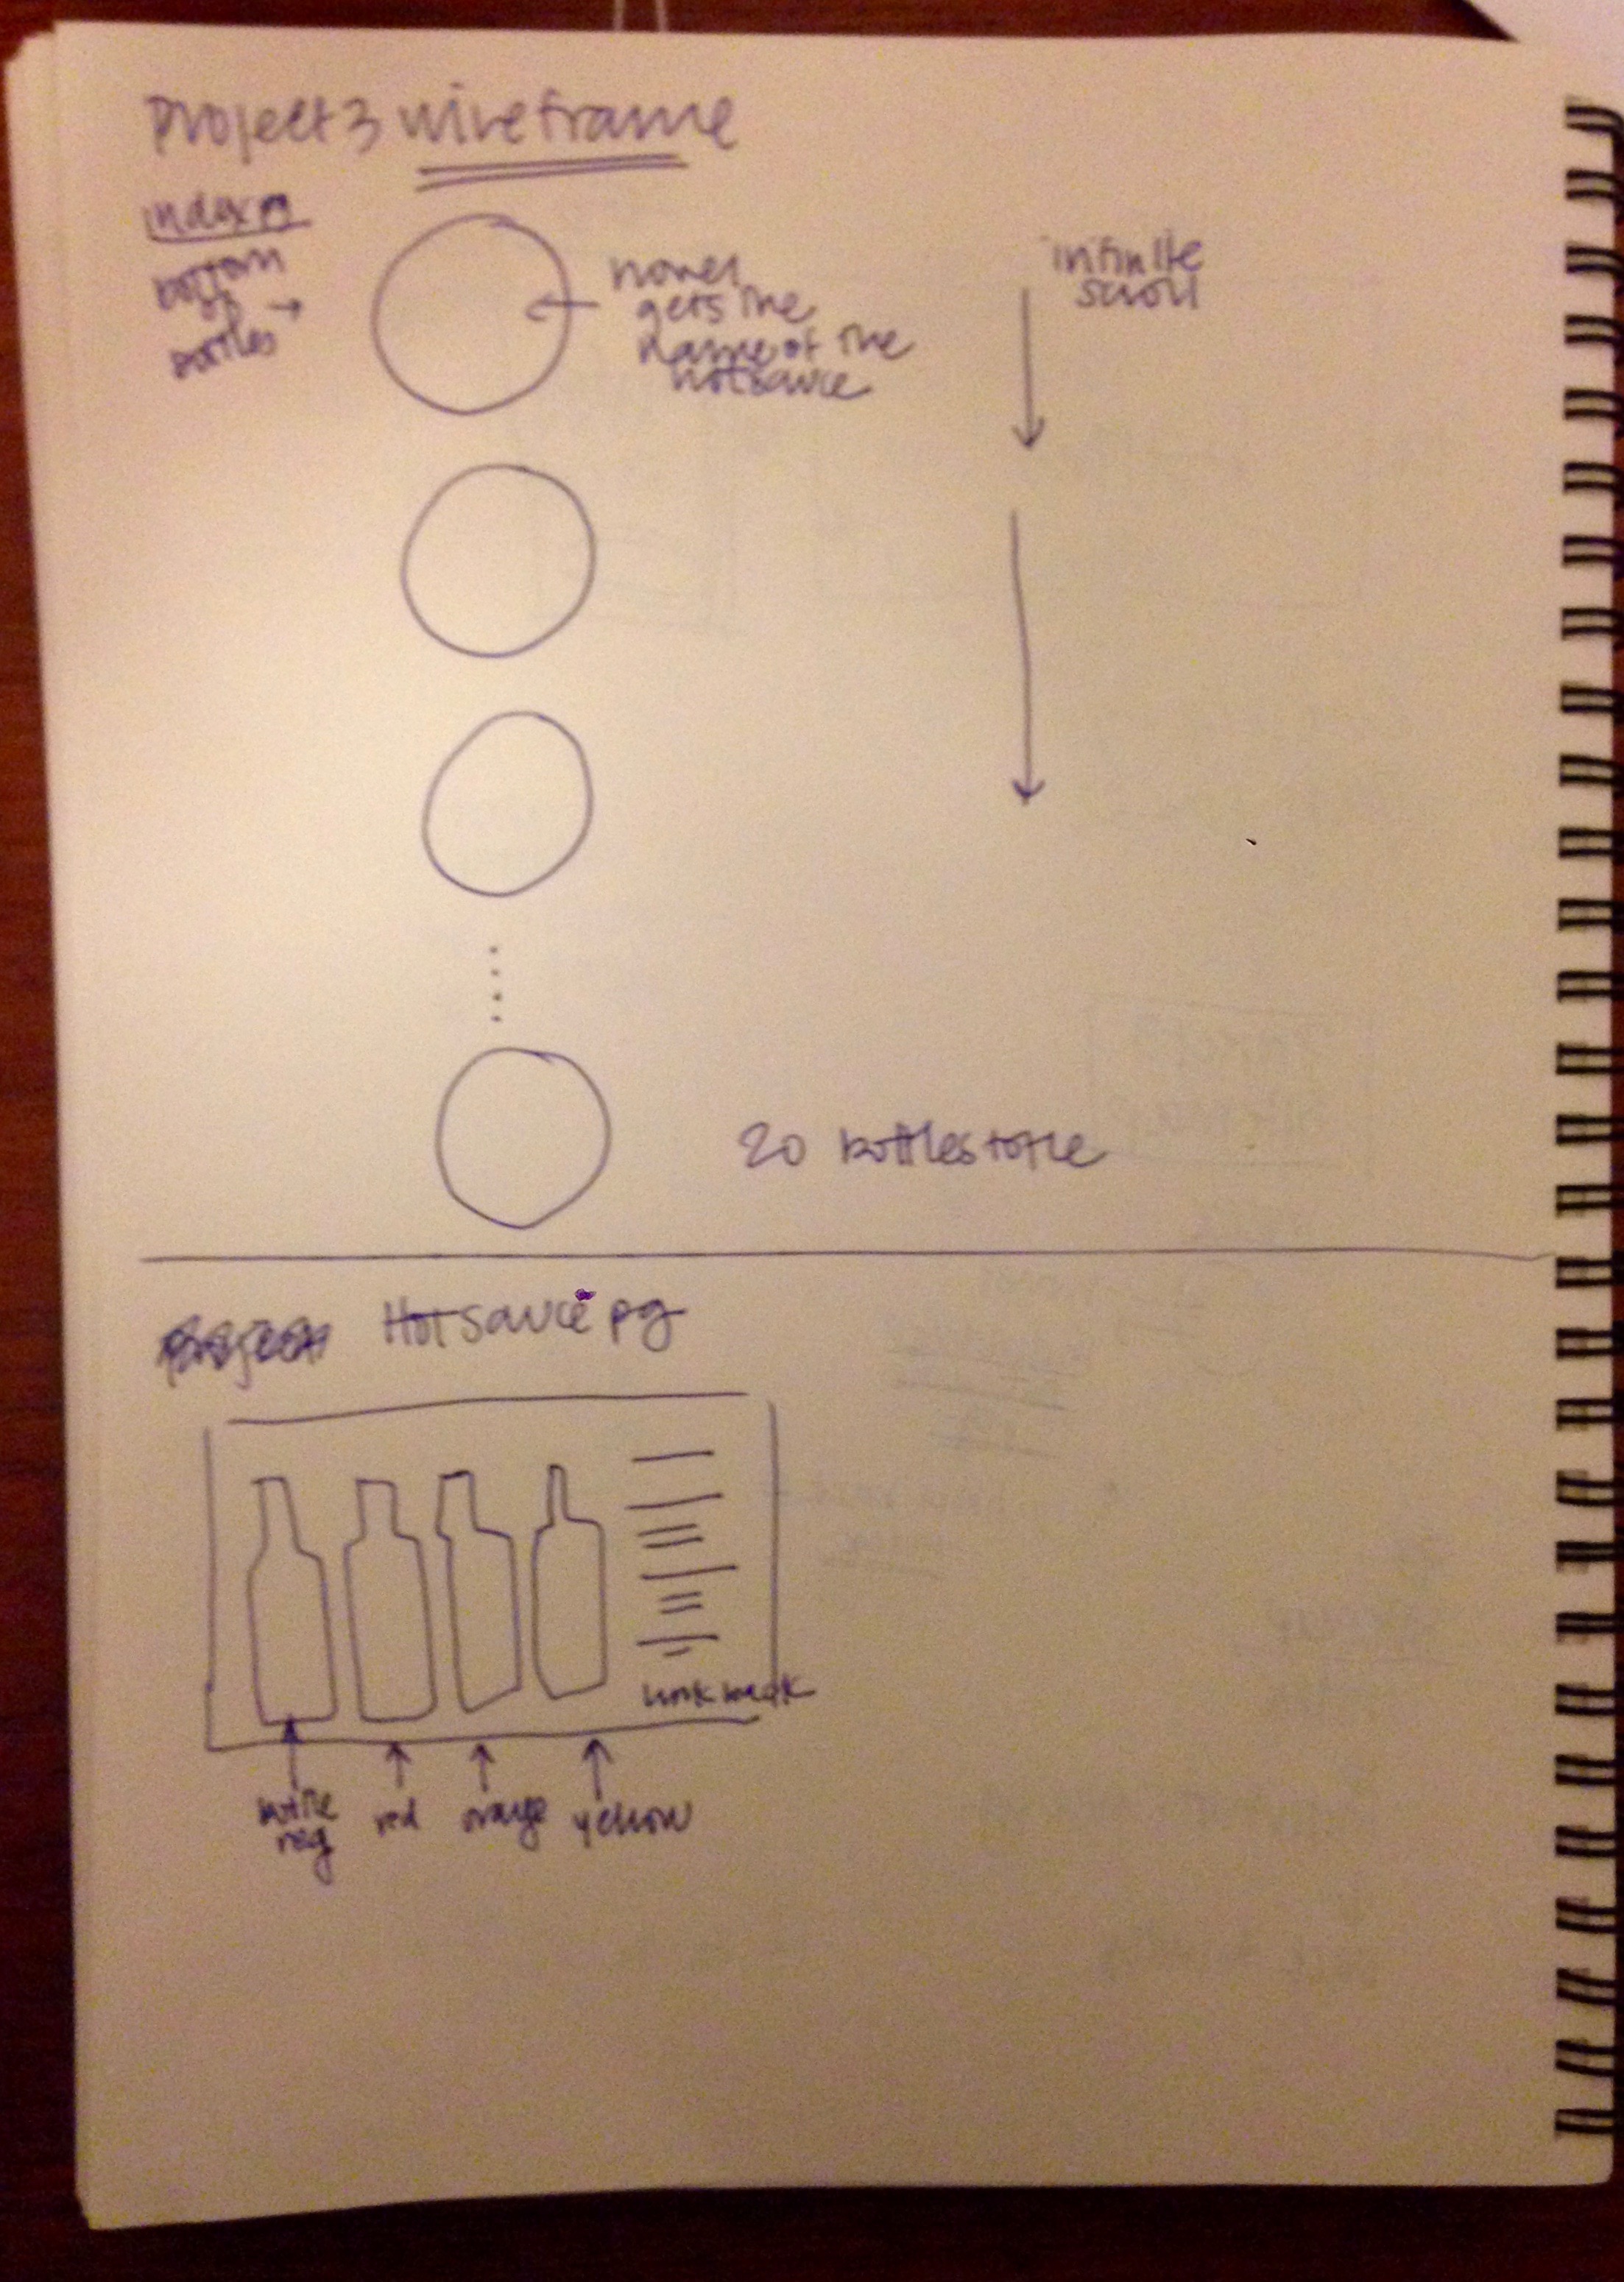 Project 3 wireframe
index pg
bottom
of →
bottles
hover
gets the
name of the
hotsauce
infinite
scroll
20 bottles totle
Hot sauce pg
link back
bottle
reg
red
orange
yellow